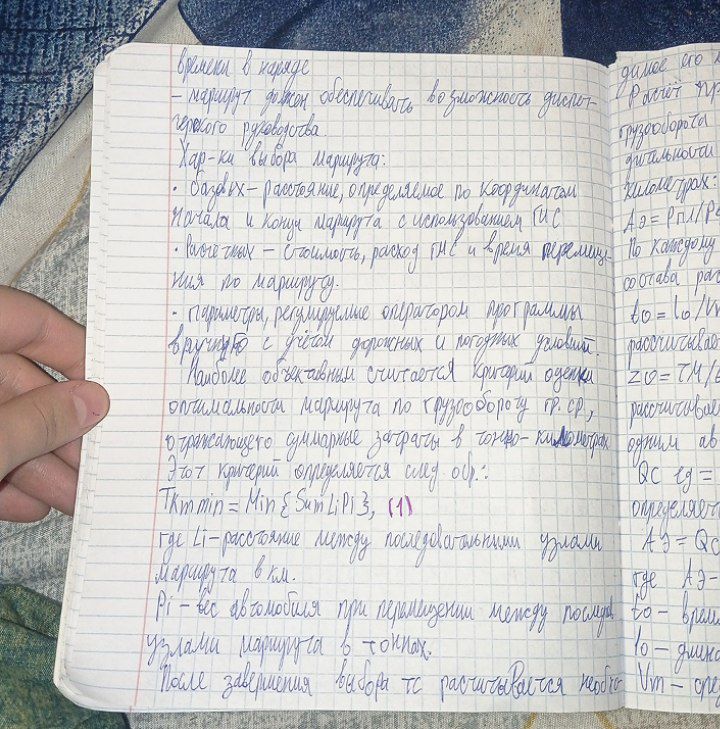 времени в наряде
- маршрут должен обеспечивать возможность диспет-
черского руководства.
Хар-ки выбора маршрута:
• базовых - расстояние, определяемое по координатам
начала и конца маршрута с использованием ГИС
• Расчётных - стоимость, расход ГМС и время перемеще-
ния по маршруту.
• параметры, регулируемые оператором программы
вручную с учётом дорожных и погодных условий.
Наиболее объективным считается критерий оценки
оптимальности маршрута по грузообороту тр. ср.,
отражающего суммарные затраты в тонно-километрах
Этот критерий определяется след. обр.:
Tkm min = Min { Sum Li Pi }, (1)
где Li - расстояние между последовательными узлами
маршрута в км.
Pi - вес автомобиля при перемещении между последов.
узлами маршрута в тоннах.
После завершения выбора тс расчитывается необхо-
димое его
Расчёт
грузооборота
километрах:
АЭ = Рпл/
По каждому
состава
to = lo/Vm
рассчитывае
рассчитывае
одним
Qc ед =
определяется
АЭ = Qc
где АЭ -
to - врем
lo - длина
Vm - сре